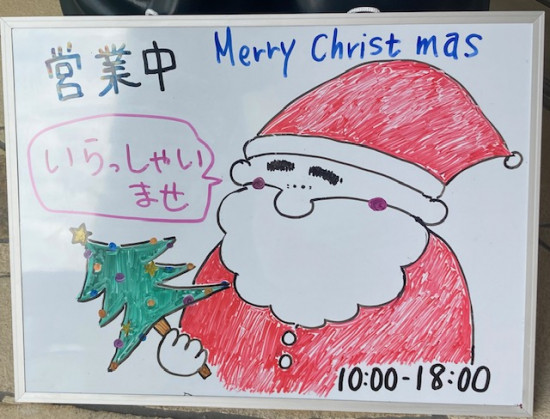 営業中
Merry Christmas
いらっしゃい
ませ
10:00-18:00